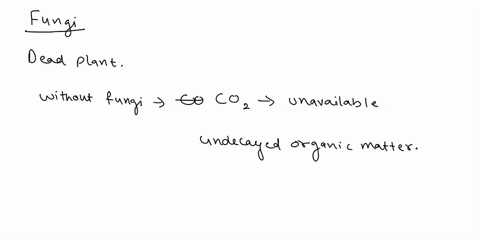 Fungi
Dead plant.
without fungi → CO₂ → unavailable
undecayed organic matter.